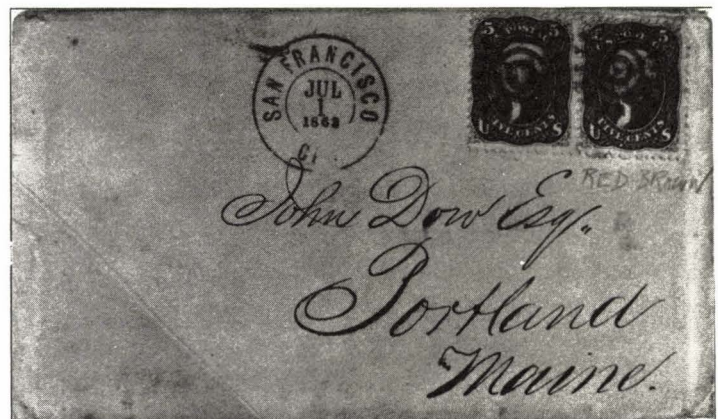 SAN FRANCISCO
JUL
1
1863
5 5
U FIVE CENTS S
5 5
U FIVE CENTS S
RED BROWN
John Dow Esq.
Portland
Maine.